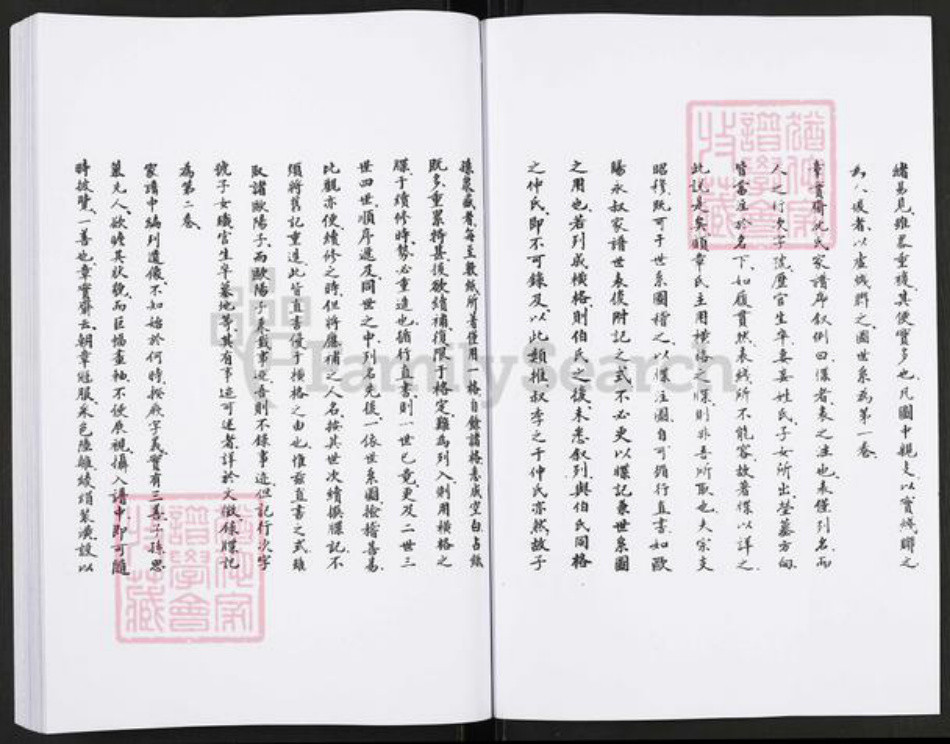 緒易見雖畧重複其便實多也凡圖中親支以實綫聯之
為人後者以虛綫聯之圖世系為第一卷
章實齋沈氏家譜序叙例曰牒者表之注也表僅列名而
人之行次字號歷官生卒妻妾姓氏子女所出塋墓方向
皆當注於名下如履貫然表綫所不能容故著牒以詳之
此說是矣顧章氏主用橫格之牒則非吾所取也夫宗支
昭穆既可于世系圖稽之以牒注圖自可循行直書如歐
陽永叔家譜世表後附記之式不必更以牒記兼世系圖
之用也若列成橫格則伯氏之後未悉叙列與伯氏同格
之仲氏即不可錄及以此類推叔季之于仲氏亦然故子
孫衆盛者每至數紙所著僅用一格自餘諸格悉成空白占紙
既多重累特甚後欲續補復限于格定難為列入則用橫格之
牒于續修時勢必重造也循行直書則一世已竟更及二世三
世四世順序遞及同世之中列名先後一依世系圖撿稽甚易
比觀亦便續修之時但將應補之人名按其世次續撰牒記不
須將舊記重造此皆直書優于橫格之由也惟茲直書之式雖
取諸歐陽子而歐陽子兼載事迹吾則不錄事迹但記行次字
號子女職官生卒墓地等其有事迹可述者詳於文徵錄牒記
為第二卷
家譜中編列遺像不知始於何時揆厥字義實有三善子孫思
慕先人欲瞻其狀貌而巨幅畫軸不便展視攝入譜中即可隨
時披覽一善也章實齋云朝章冠服采色陸離綾絹裝潢設以
FamilySearch